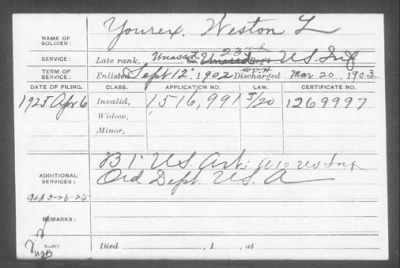 NAME OF SOLDIER: Yourex, Weston L
SERVICE: Late rank, Unass't 23rd US Inf
TERM OF SERVICE: Enlisted Sept 12, 1902 Discharged Mar 20, 1903
DATE OF FILING. CLASS. APPLICATION NO. LAW. CERTIFICATE NO.
1925 Apr 6 Invalid, 1,516,991 5/20 1269997
Widow,
Minor,
ADDITIONAL SERVICES: B 1' U.S. Art; U.S. Inf
Ord Dept. U.S. A
REMARKS:
Died , 1 , at